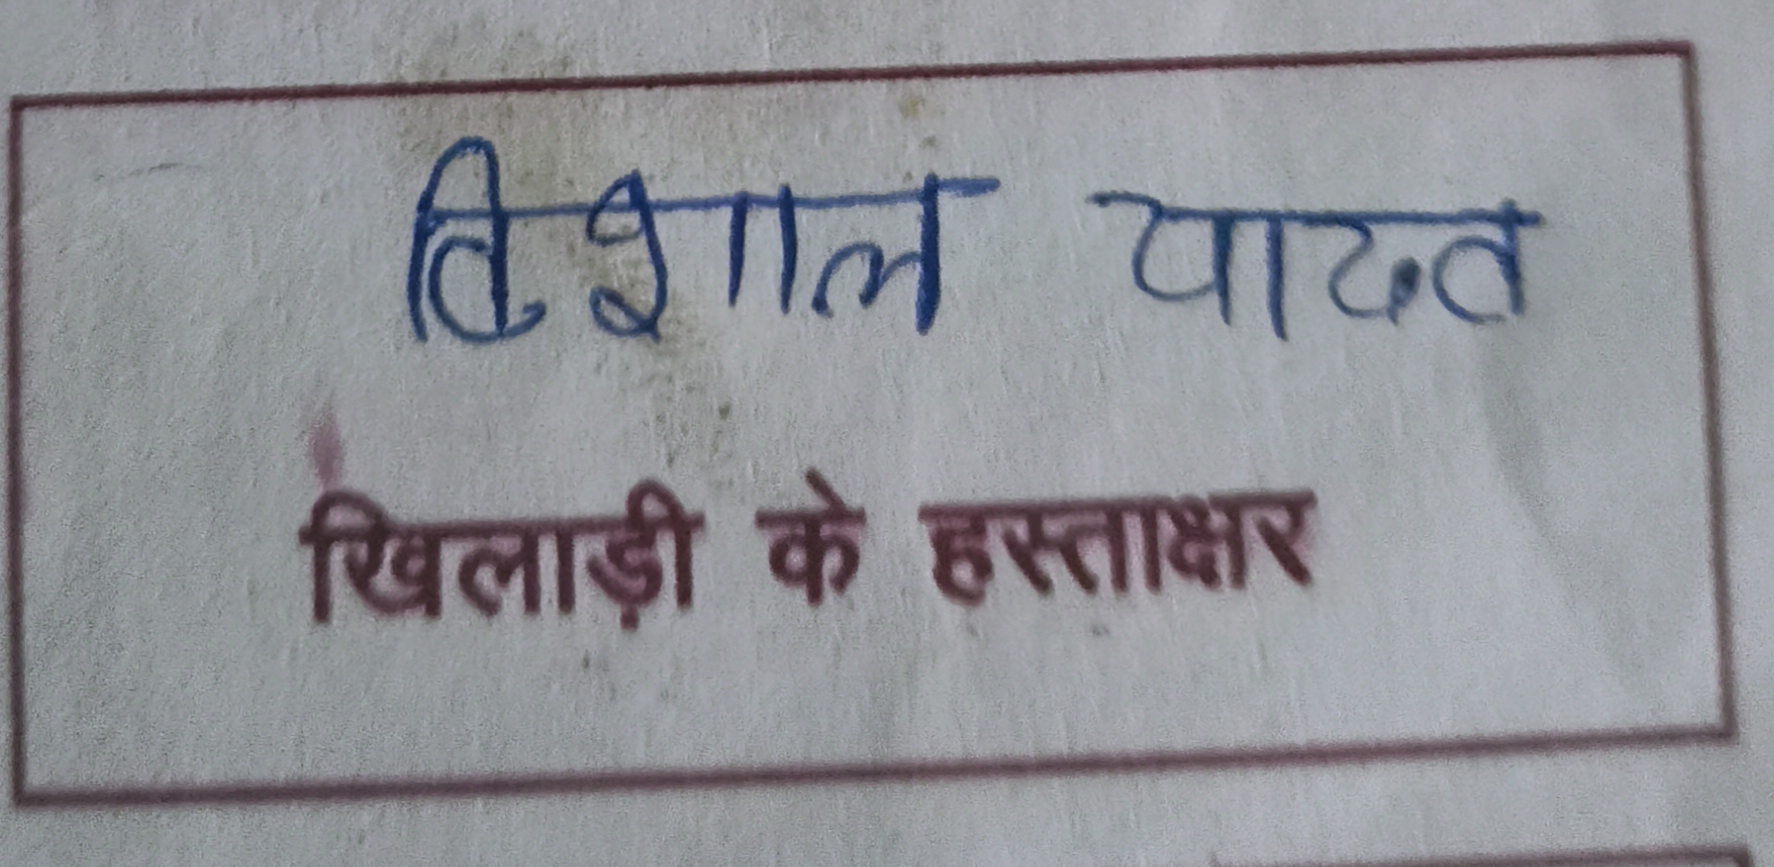 विशाल यादव
खिलाड़ी के हस्ताक्षर